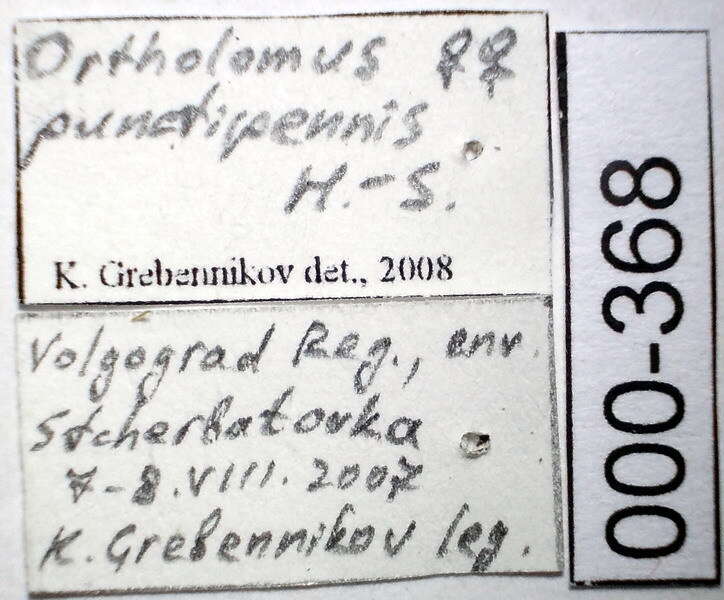 Ortholomus ♀♀
punctipennis
H.-S.
K. Grebennikov det., 2008
Volgograd Reg., env.
Stcherbatovka
7-8.VIII.2007
K. Grebennikov leg.
000-368